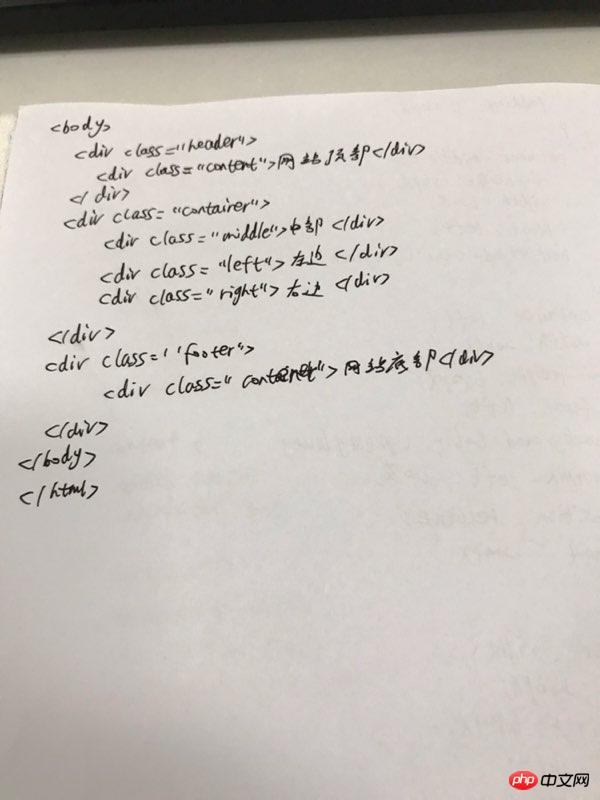 <body>
<div class="header">
<div class="content">网站顶部</div>
</div>
<div class="container">
<div class="middle">中部</div>
<div class="left">左边</div>
<div class="right">右边</div>
</div>
<div class=''footer">
<div class="">网站底部</div>
</div>
</body>
</html>
php 中文网